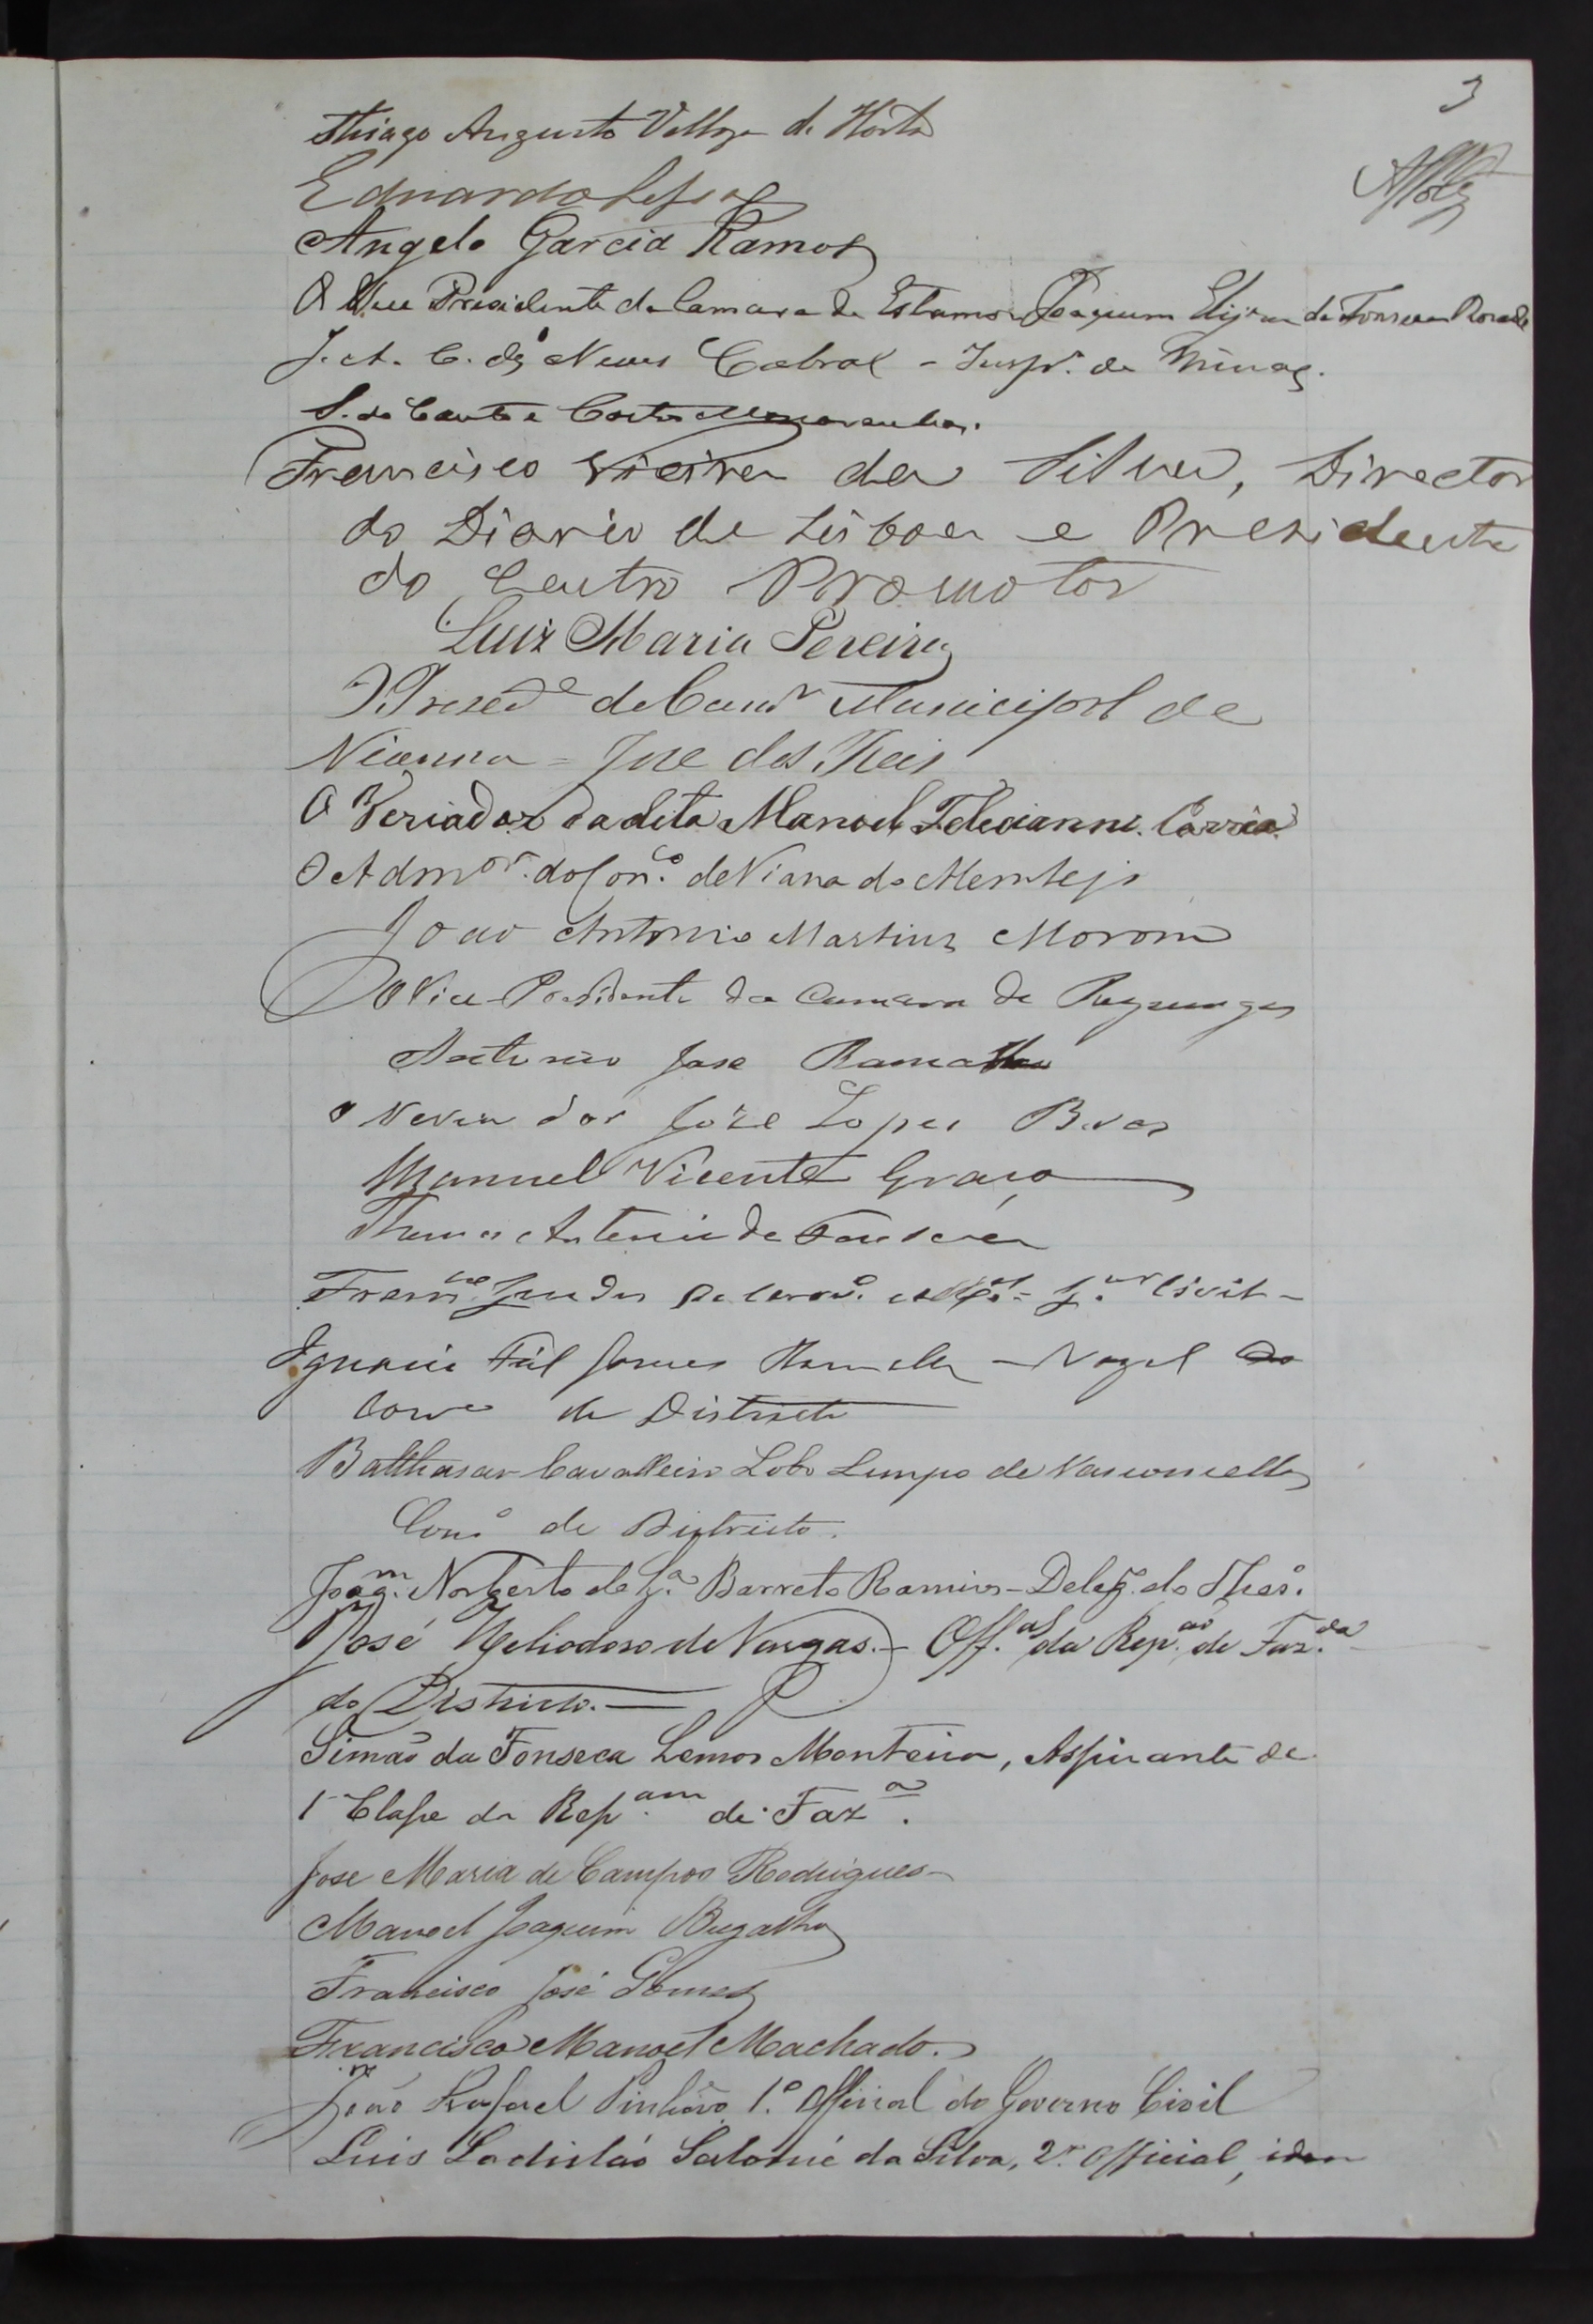 3
Thiago Augusto Velloso da Horta
Eduardo Lessa
Angelo Garcia Ramos
O Vice Presidente da Camara de Estamos Joaquim da Fonseca
J. A. C. das Neves Cabral - Insp.r de Minas.
S. do Canto e Castro Mascarenhas.
Francisco Vieira da Silva, Director
do Diario de Lisboa e Presidente
do Centro Promotor
Luiz Maria Pereira
O Presed.e da Camr.a Municipal de
Vianna = Jose dos Reis
O Veriador da dita Manoel Correa
O Admor. do Con.co de Viana do Alemtejo
João Antonio Martins
O Vice-Presidente da Camara de Reguengos
Antonio Jose Ramalho
o Veriador José Lopes
Manuel Vicente Graça
Antonio da Fonseca
Civil -
Ignacio Fiel Gomes Ramalho - Vogal do
Cons.o de Districto
Balthasar Cavalleiro Lobo Limpo de Vasconcellos
Cons.o de Districto.
Joaq.m Norberto de Barreto Ramires - Deleg.do do Thes.o
José Heliodoro de Vargas. - Off.al da Rep.ão de Faz.da
do Districto. -
Simão da Fonseca Lemos Monteiro, Aspirante de
1ª Classe da Rep.am de Faz.a
Jose Maria de Campos Rodrigues
Manoel Joaquim Bugalho
Francisco José Gomes
Francisco Manoel Machado.
João Rafael Pinheiro 1.º Official do Governo Civil
Luis Ladisláo Salomé da Silva, 2.º official, idem